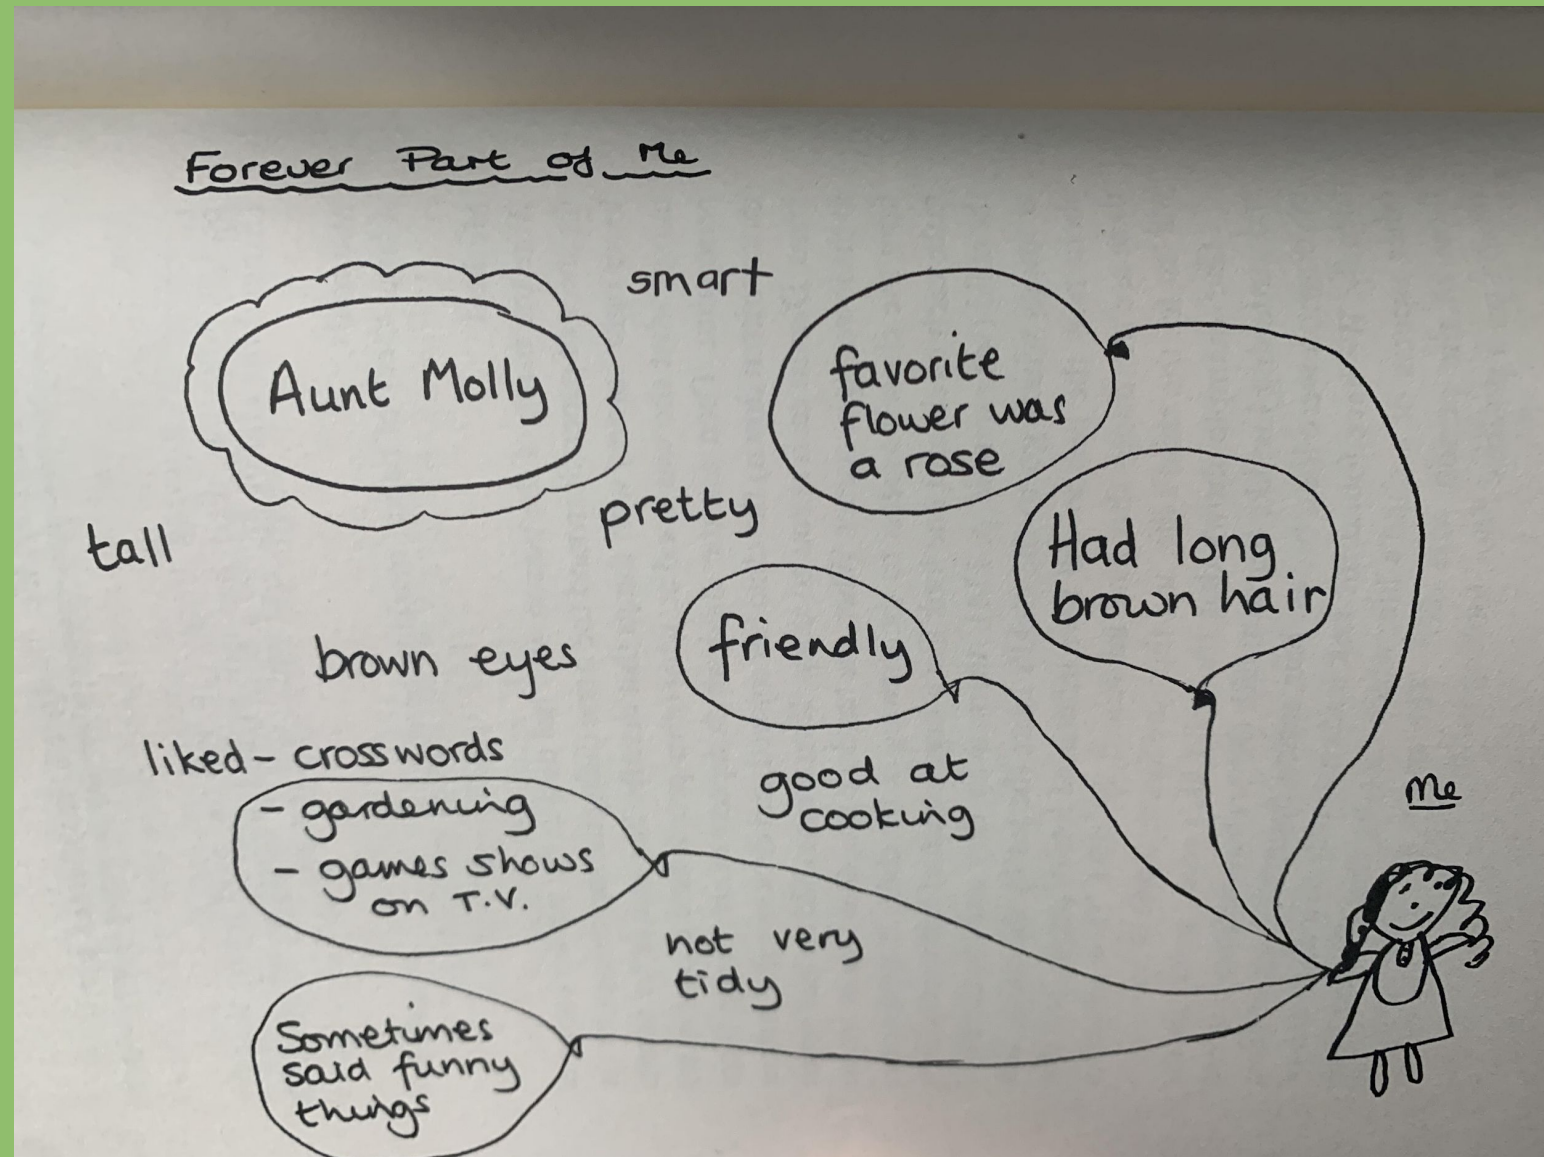 Forever Part of Me
smart
Aunt Molly
favorite
flower was
a rose
pretty
tall
Had long
brown hair
friendly
brown eyes
liked - crosswords
- gardening
- games shows
on T.V.
good at
cooking
Me
not very
tidy
Sometimes
said funny
things